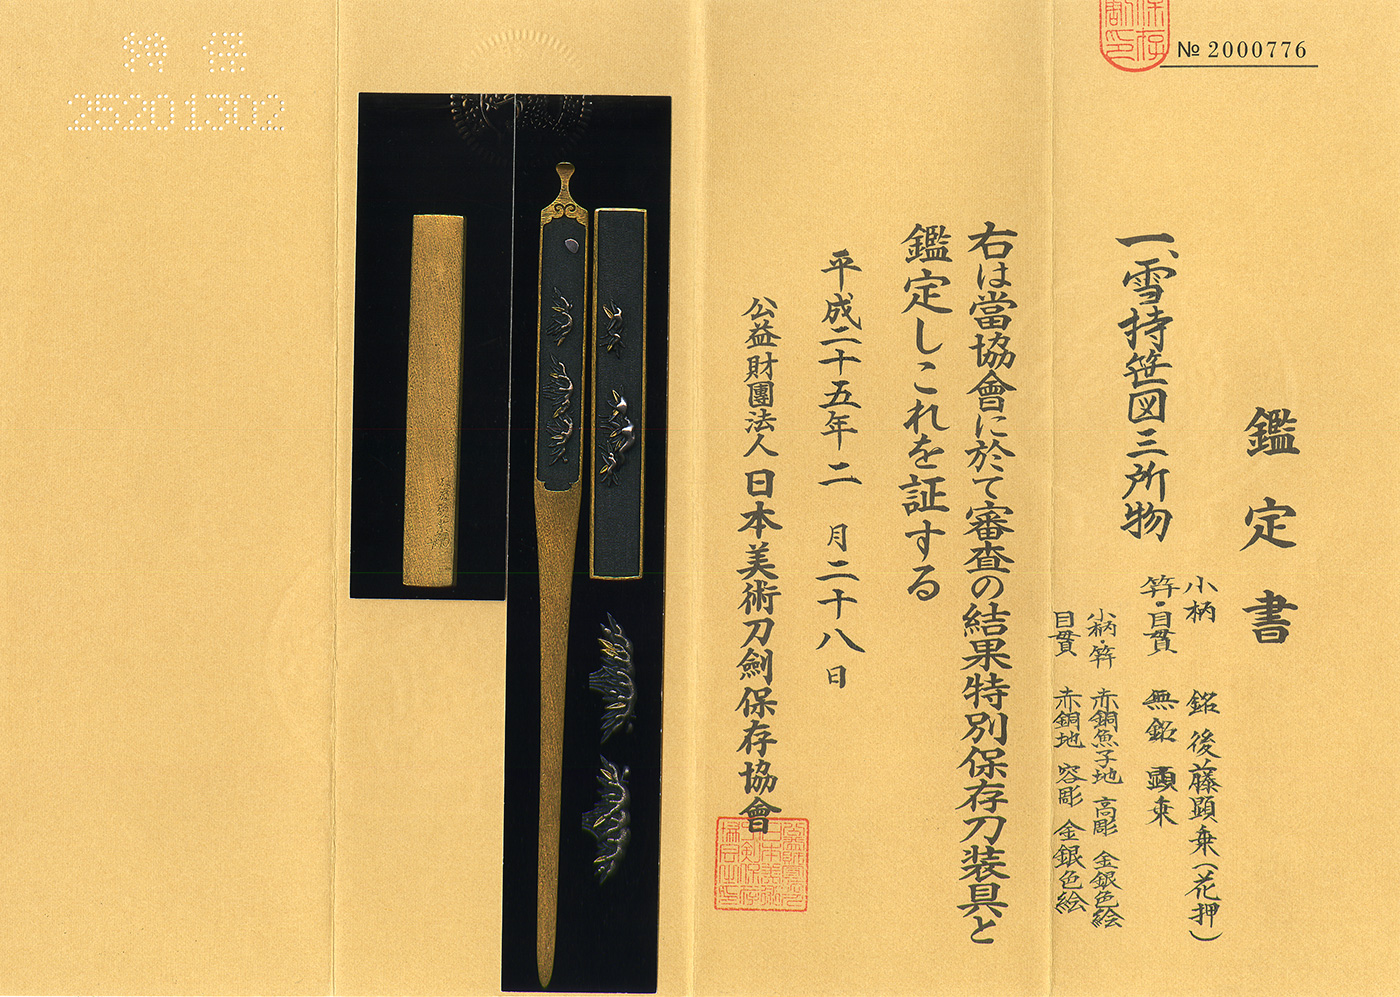 № 2000776
鑑定書
一、雪持笹図三所物
小柄 銘 後藤顕乗(花押)
笄・目貫 無銘 顕乗
小柄・笄 赤銅魚子地 高彫 金銀色絵
目貫 赤銅地 容彫 金銀色絵
右は當協會に於て審査の結果特別保存刀装具と
鑑定しこれを証する
平成二十五年二月二十八日
公益財團法人日本美術刀劍保存協會
25201302